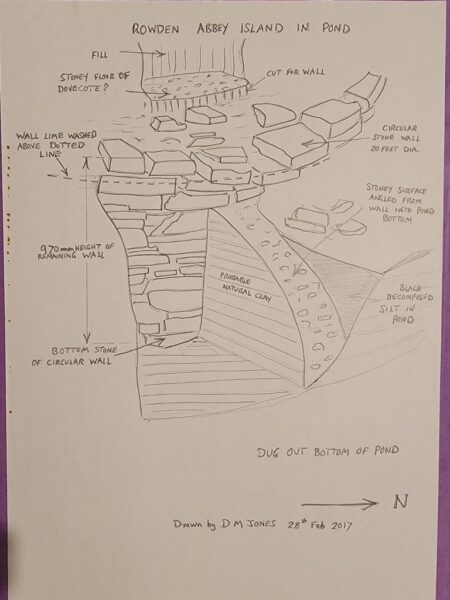 ROWDEN ABBEY ISLAND IN POND
FILL
STONEY FLOOR OF
DOVECOTE?
CUT FOR WALL
WALL LIME WASHED
ABOVE DOTTED
LINE
CIRCULAR
STONE WALL
20 FEET DIA.
STONEY SURFACE
ANGLED FROM
WALL INTO POND
BOTTOM
970mm HEIGHT OF
REMAINING WALL
PROBABLE
NATURAL CLAY
BLACK
DECOMPOSED
SILT IN
POND
BOTTOM STONE
OF CIRCULAR WALL
DUG OUT BOTTOM OF POND
N
Drawn by D M JONES 28th Feb 2017